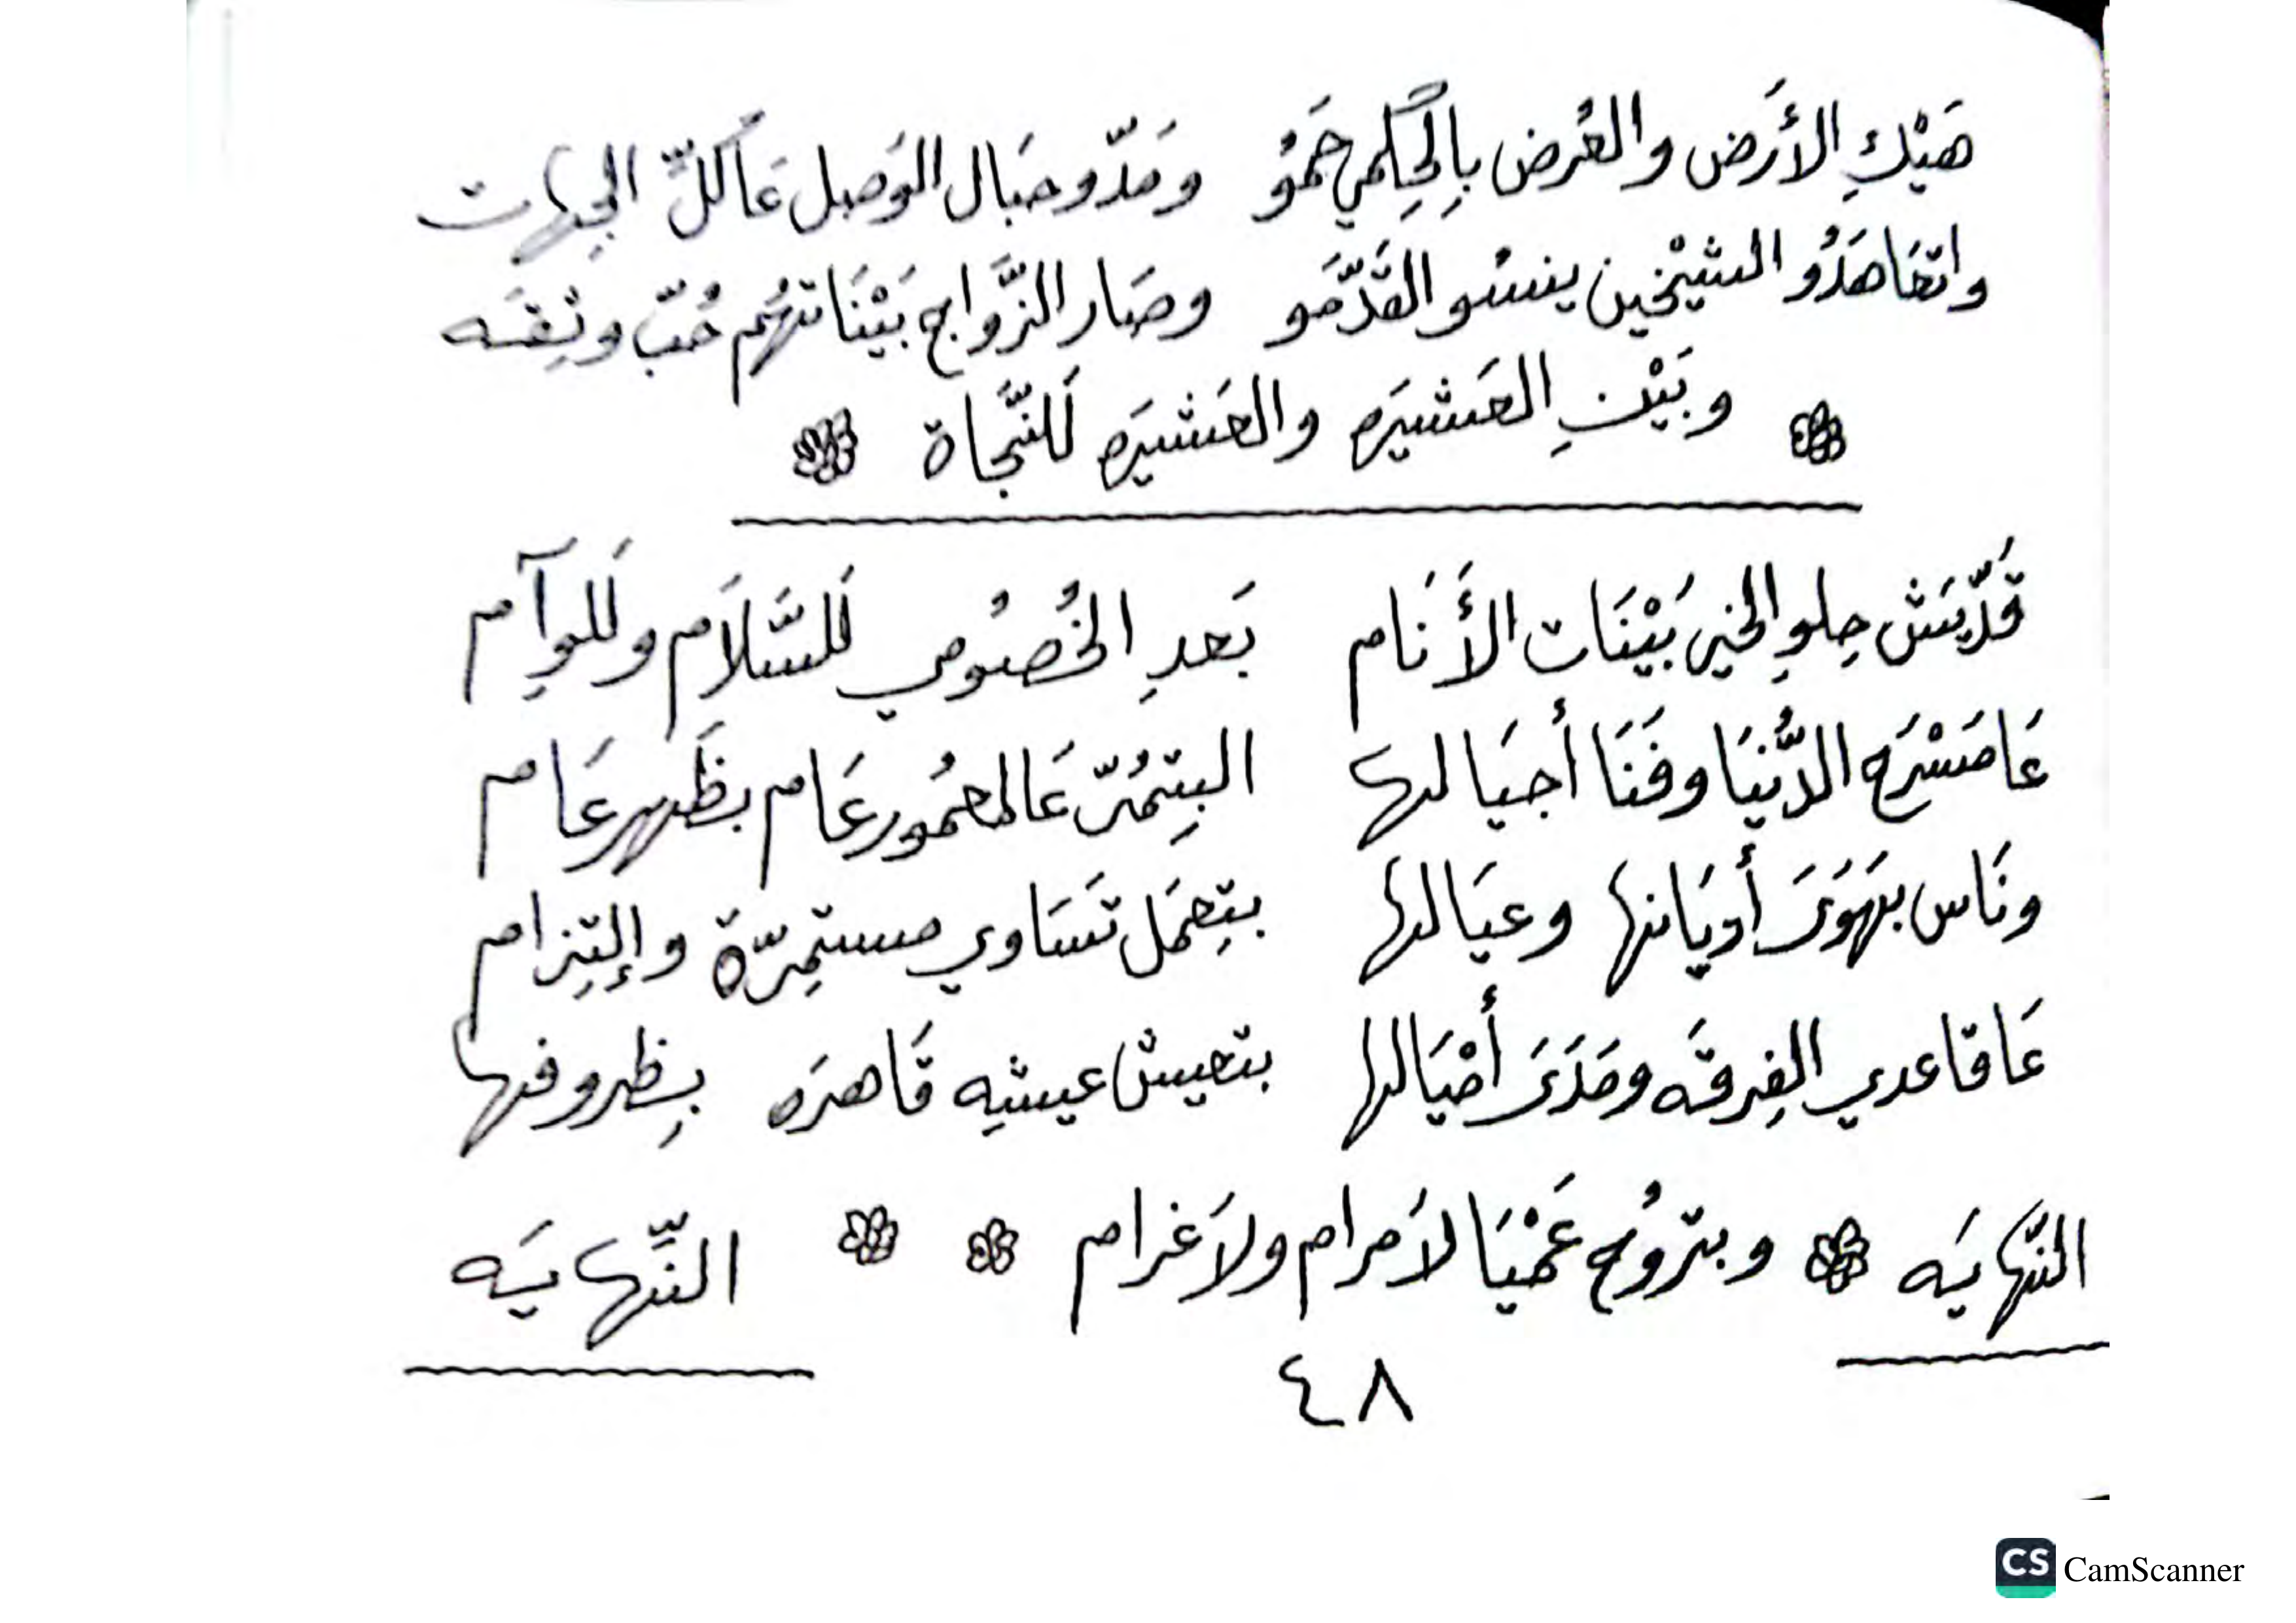 هَيْكِ الأَرض والعُرض بِالحِكمي حَمُو ومَدّو حبَال الوَصل عَا كلّ الجِهات
واتعَاهَدُو الشيْخين ينسُو القَدّمَو وصَار الزَّواج بَيْنَاتهُم حُبّ وثِقَه
وبَيْنِ العَشيرَه والعَشيرَه لَلنَّجَاة
قَدّيش حِلوِ الخير بَيْنَات الأَنَام بَعدِ الخُصُومي لَلسَّلاَم ولَلوِآم
عَا مَسْرَح الدُّنيَا وفَنَا أجيَالها البِتمُرّ عَالمعمُور عَام بظَهر عَام
ونَاس بهَوَىَ أديَانها وعيَالها بتِعمَل تَسَاوي مستمِرّة وإلتِزام
عَا قاعدي الفِرقَه ومَدَىَ أمْيَالها بتعيش عيشِه قَاهرَه بِظروفها
النّهايَه وبتروُح عَمْيَا لاَ مرام ولاَ غرام النِّهايَه
٤٨
CS CamScanner